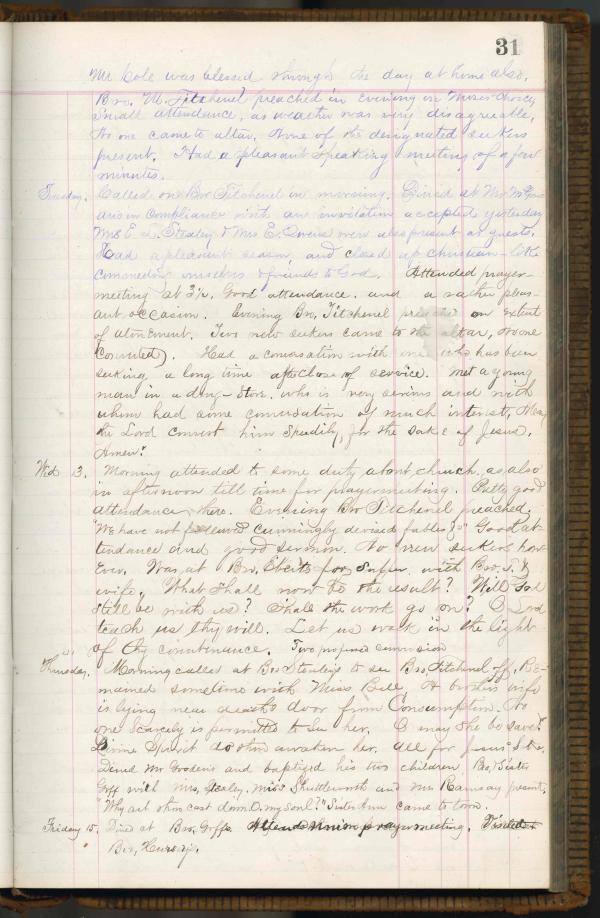 31
Mr Cole was blessed through the day at home also.
Bro. M. Fitchenel preached in evening on Mercy
Small attendance, as weather was very disagreeable,
No one came to altar. None of the designated seekers
present. Had a pleasant speaking meeting of a few
minutes.
Tuesday. Called on Bro Fitchenel in morning. Dined at Mr
also in compliance with an invitation accepted yesterday
Mrs E. L. Stealey & Mrs E. Owens were also present as guests.
Had a pleasant season, and closed up christian-like
commending ourselves & friends to God. Attended prayer-
meeting at 3 P.M. Good attendance, and a rather pleas-
ant occasion. Evening Bro. Fitchenel preached on extent
of atonement. Two new seekers came to the altar, No one
Converted. Had a conversation with one who has been
seeking a long time after close of service. Met a young
man in a drug-store, who is very serious and with
whom had some conversation of much interest, May
the Lord convert him speedily, for the sake of Jesus,
Amen!
Wed 13. Morning attended to some duty about church, as also
in afternoon till time for prayermeeting. Pretty good
attendance there. Evening Bro Fitchenel preached.
"We have not followed cunningly devised fables &c" Good at
tendance and good sermon. No new seekers how
ever. Was at Bro. for Supper with Bro. S. &
wife. What shall now be the result? Will God
still be with us? Shall the work go on? O Lord
teach us thy will. Let us walk in the light
of thy countenance. Two professed conversion
Thursday. Morning called at Bro Stealey's to see Bro. Fitchenel off. Re-
mained sometime with Miss Bell, & brother's wife
is lying near death's door from Consumption. No
one scarcely is permitted to see her. O may she be saved!
Divine Spirit do thou awaken her. All for Jesus' sake.
Dined Mr Goodens and baptized his two children Bro, Sister
Goff with Mrs. Stealey. Miss Shuttleworth and Mrs Ramsay present.
"Why art thou cast down O, my soul?" Sister Ann came to town.
Friday 15. Dined at Bro, Goffs. Attended Union prayermeeting. Visited
Bro,